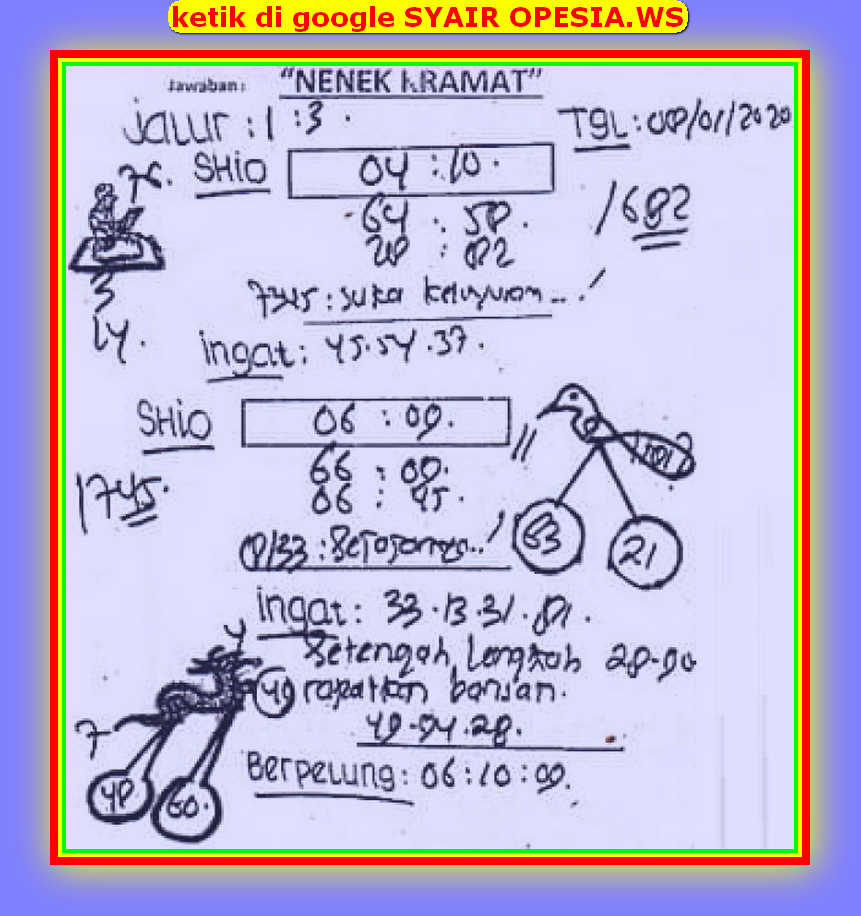 ketik di google SYAIR OPESIA.WS
Jawaban: "NENEK KRAMAT"
Jalur : 1 : 3 .
TGL : 08/01/2020
76. SHIO 04 : 10 .
64 : 58 .
28 : 82
1682
3
14.
7345 : suka
ingat : 45.54.37.
SHIO 06 : 09.
66 : 09.
06 : 45 .
1745.
63
21
ingat : 33.13.31.81.
Setengah Langkah 28-90
49 rapatkan barisan.
49-94.28.
4
7
48
60.
Berpeluang : 06 : 10 : 09.